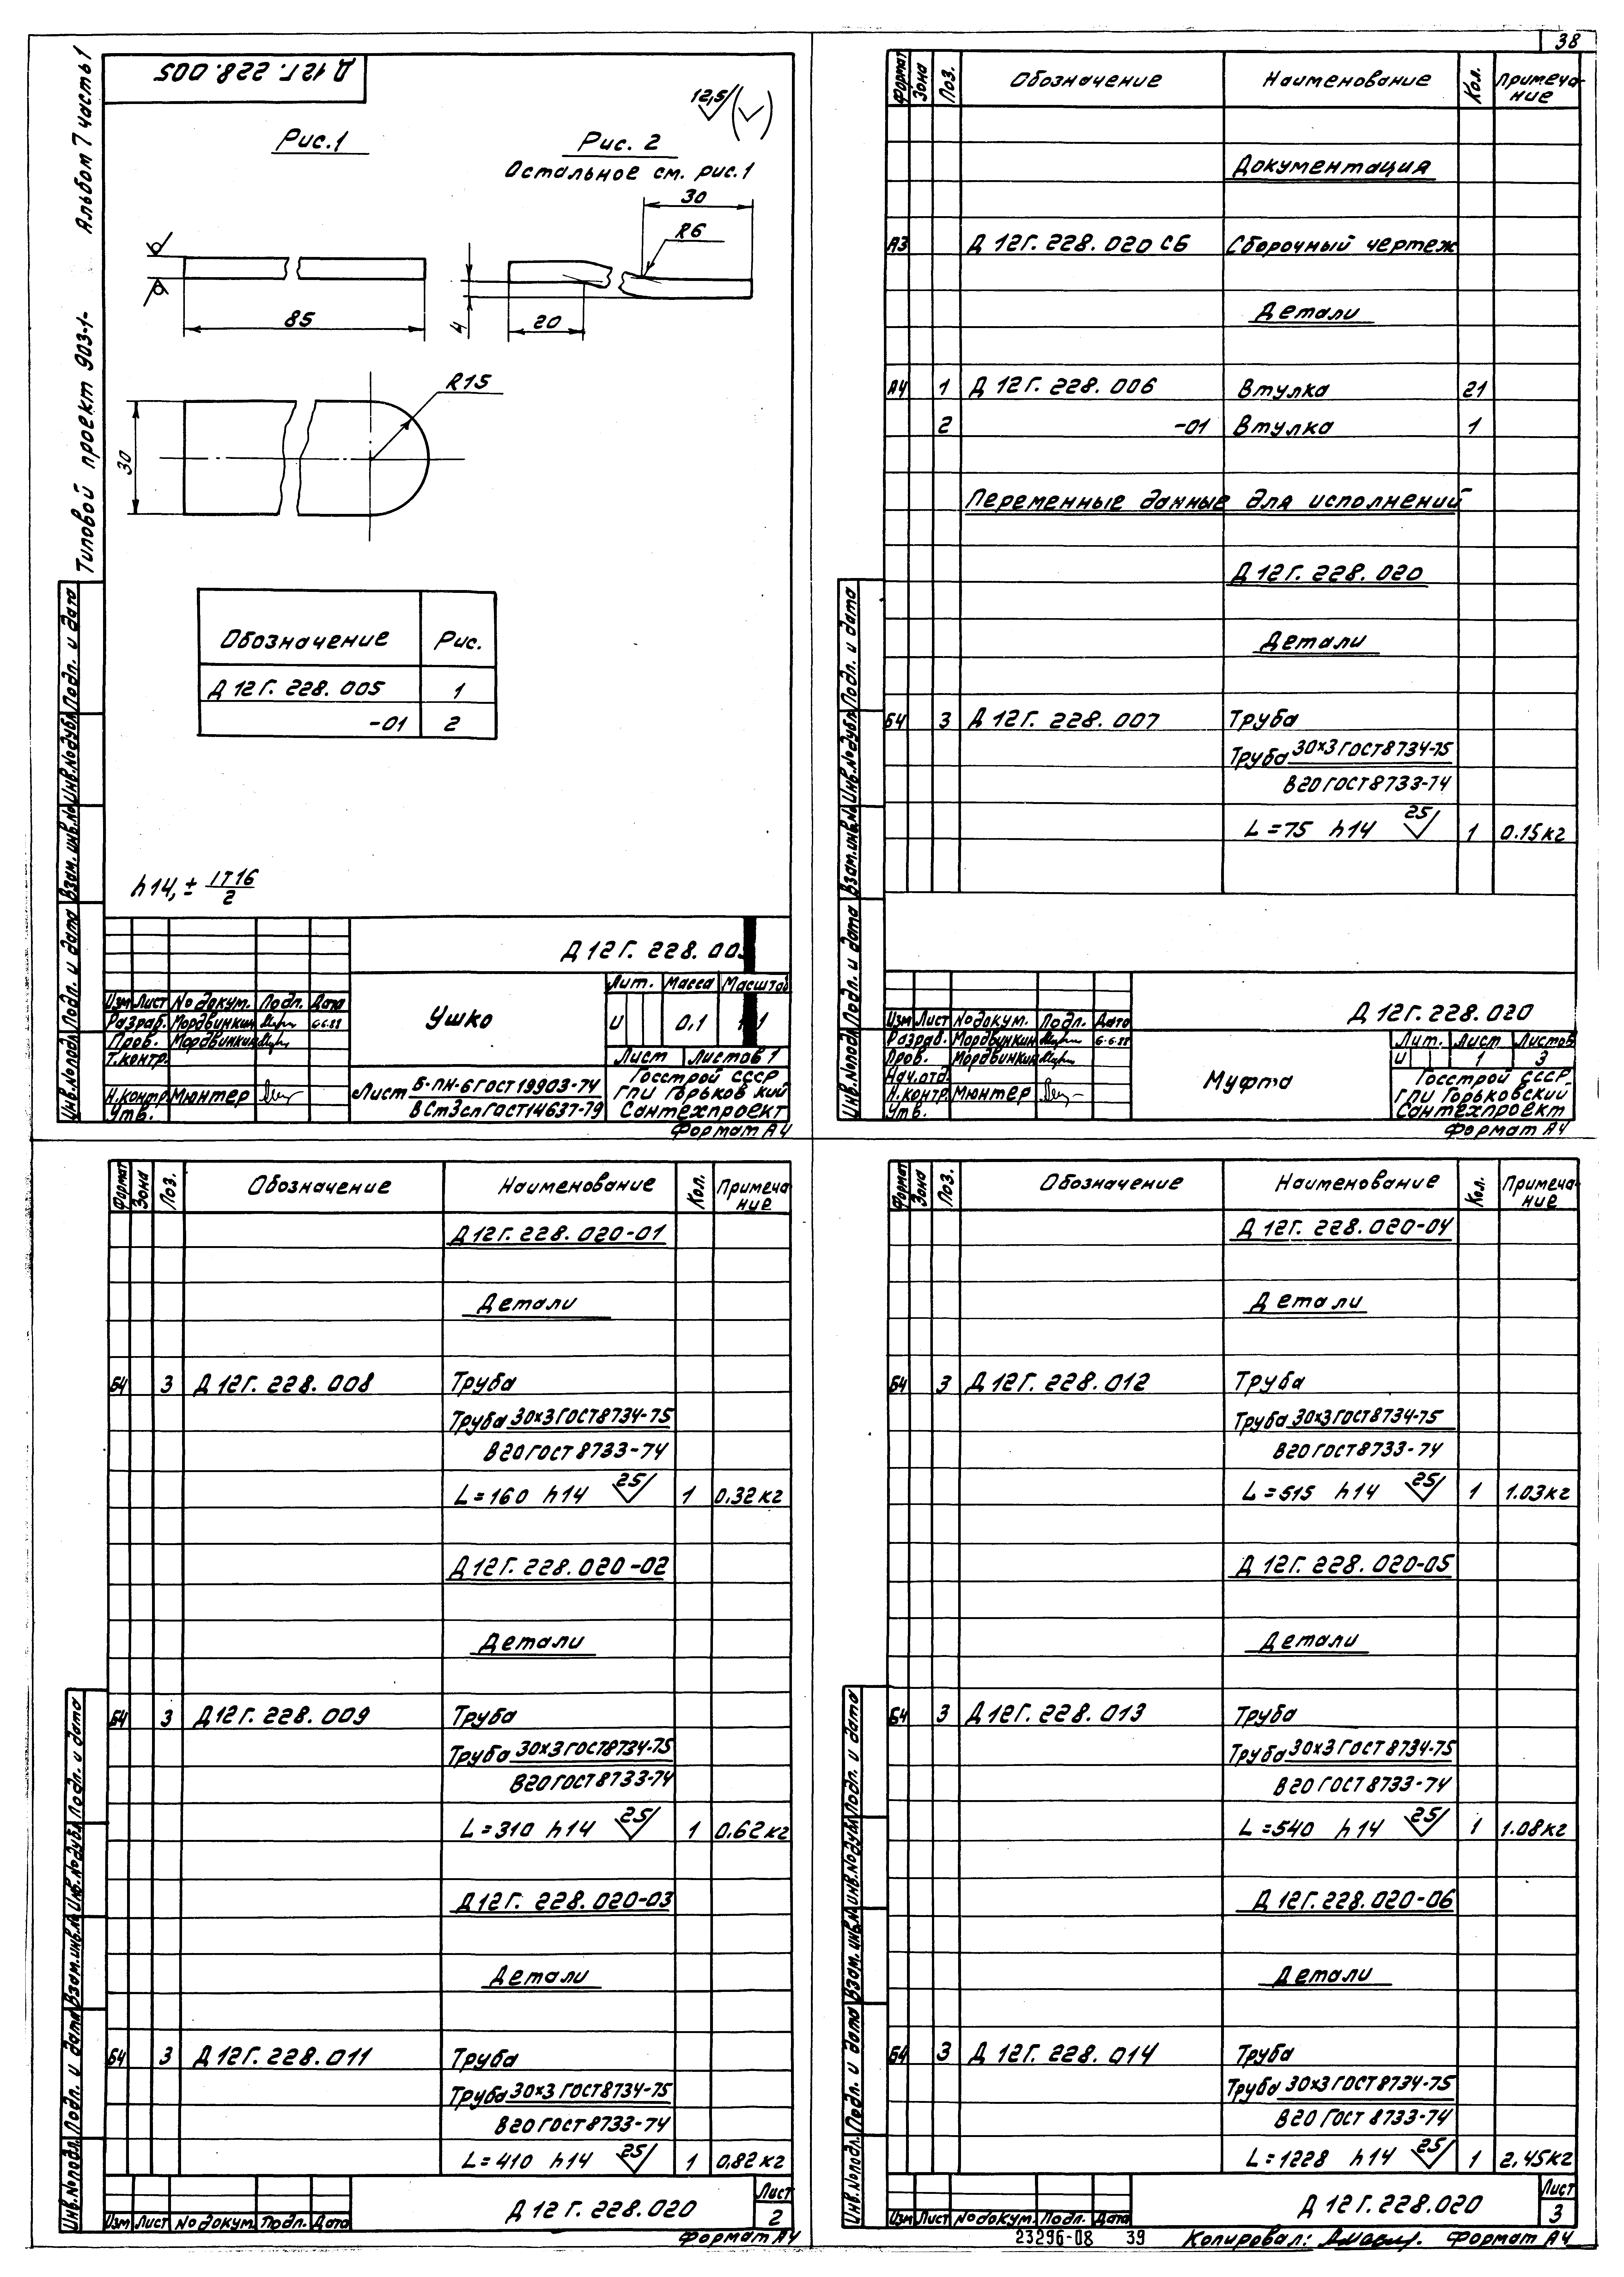 38
Альбом 7 часть 1
Типовой проект 903-1-
Д 12Г. 228. 005
12,5
Рис. 1
Рис. 2
Остальное см. рис. 1
30
R6
85
4
20
R15
30
Обозначение Рис.
Д 12Г. 228. 005 1
-01 2
h14, ± IT16/2
Инв.№подл. Подп. и дата Взам.инв.№ Инв.№дубл. Подп. и дата
Д 12Г. 228. 00
Изм Лист №докум. Подп. Дата
Разраб. Мордвинкин 6.6.88
Пров. Мордвинкин
Т.контр.
Н.контр. Мюнтер
Утв.
Ушко
Лит. Масса Масштаб
И 0,1
Лист Листов 1
Лист Б-ПН-6 ГОСТ 19903-74
ВСт3сп ГОСТ 14637-79
Госстрой СССР
ГПИ Горьковский
Сантехпроект
Формат А4
Формат Зона Поз. Обозначение Наименование Кол. Примеча-
ние
Документация
А3 Д 12Г. 228. 020 СБ Сборочный чертеж
Детали
А4 1 Д 12Г. 228. 006 Втулка 21
2 -01 Втулка 1
Переменные данные для исполнений
Д 12Г. 228. 020
Детали
Б4 3 Д 12Г. 228. 007 Труба
Труба 30×3 ГОСТ 8734-75
В20 ГОСТ 8733-74
L=75 h14 25 1 0.15кг
Инв.№подл. Подп. и дата Взам.инв.№ Инв.№дубл. Подп. и дата
Д 12Г. 228. 020
Изм Лист №докум. Подп. Дата
Разраб. Мордвинкин 6.6.88
Пров. Мордвинкин
Нач.отд.
Н.контр. Мюнтер
Утв.
Муфта
Лит. Лист Листов
И 1 3
Госстрой СССР
ГПИ Горьковский
Сантехпроект
Формат А4
Формат Зона Поз. Обозначение Наименование Кол. Примеча-
ние
Д 12Г. 228. 020-01
Детали
Б4 3 Д 12Г. 228. 008 Труба
Труба 30×3 ГОСТ 8734-75
В20 ГОСТ 8733-74
L=160 h14 25 1 0.32кг
Д 12Г. 228. 020-02
Детали
Б4 3 Д 12Г. 228. 009 Труба
Труба 30×3 ГОСТ 8734-75
В20 ГОСТ 8733-74
L=310 h14 25 1 0.62кг
Д 12Г. 228. 020-03
Детали
Б4 3 Д 12Г. 228. 011 Труба
Труба 30×3 ГОСТ 8734-75
В20 ГОСТ 8733-74
L=410 h14 25 1 0.82кг
Инв.№подл. Подп. и дата Взам.инв.№ Инв.№дубл. Подп. и дата
Изм Лист №докум. Подп. Дата
Д 12Г. 228. 020
Лист
2
Формат А4
Формат Зона Поз. Обозначение Наименование Кол. Примеча-
ние
Д 12Г. 228. 020-04
Детали
Б4 3 Д 12Г. 228. 012 Труба
Труба 30×3 ГОСТ 8734-75
В20 ГОСТ 8733-74
L=515 h14 25 1 1.03кг
Д 12Г. 228. 020-05
Детали
Б4 3 Д 12Г. 228. 013 Труба
Труба 30×3 ГОСТ 8734-75
В20 ГОСТ 8733-74
L=540 h14 25 1 1.08кг
Д 12Г. 228. 020-06
Детали
Б4 3 Д 12Г. 228. 014 Труба
Труба 30×3 ГОСТ 8734-75
В20 ГОСТ 8733-74
L=1228 h14 25 1 2.45кг
Инв.№подл. Подп. и дата Взам.инв.№ Инв.№дубл. Подп. и дата
Изм Лист №докум. Подп. Дата
Д 12Г. 228. 020
Лист
3
23296-08 39 Копировал: Формат А4